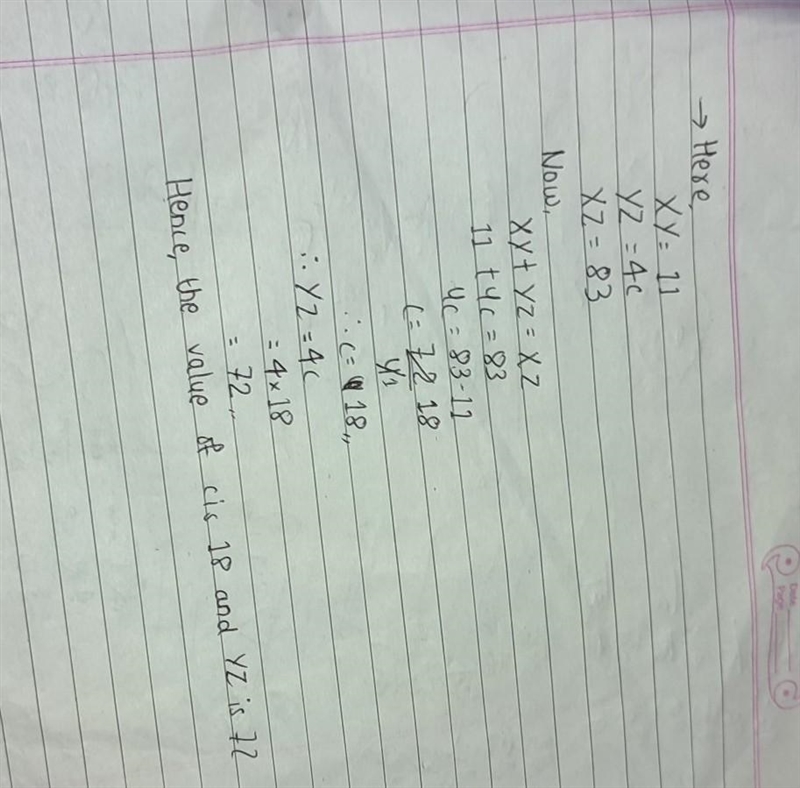 → Here,
XY = 11
YZ = 4c
XZ = 83
Now,
XY + YZ = XZ
11 + 4c = 83
4c = 83-11
c = 72 18
4 1
∴ c = 18,,
∴ YZ = 4c
= 4 × 18
= 72,,
Hence, the value of c is 18 and YZ is 72
Date
Page